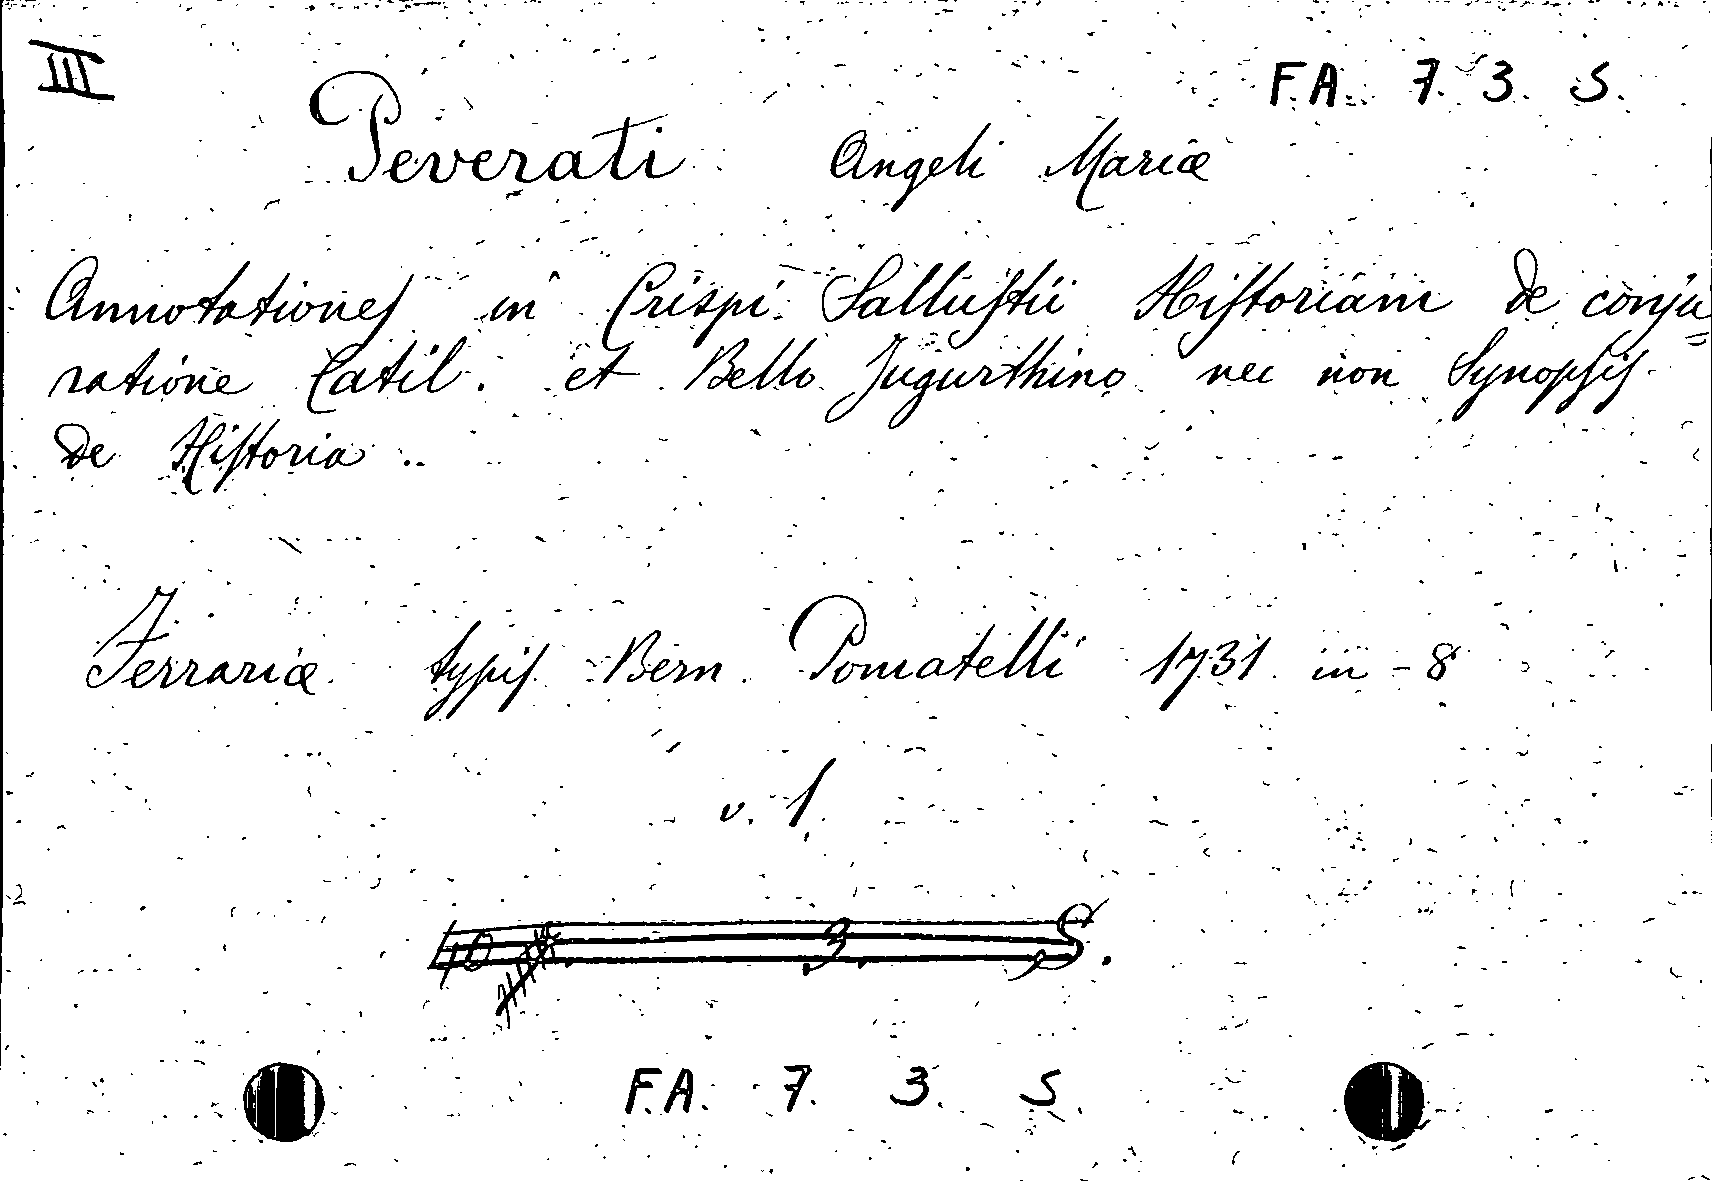 III
F.A. 7. 3. S.
Peverati Angeli Mariæ
Annotationes in Crispi Sallustii Historiam de conju=
ratione Catil. et Bello Jugurthino nec non Synopsis
de Historia.
Ferrariæ typis Bern. Pomatelli 1731 in-8
v. 1.
10 . 3. S.
F.A. 7. 3. S.